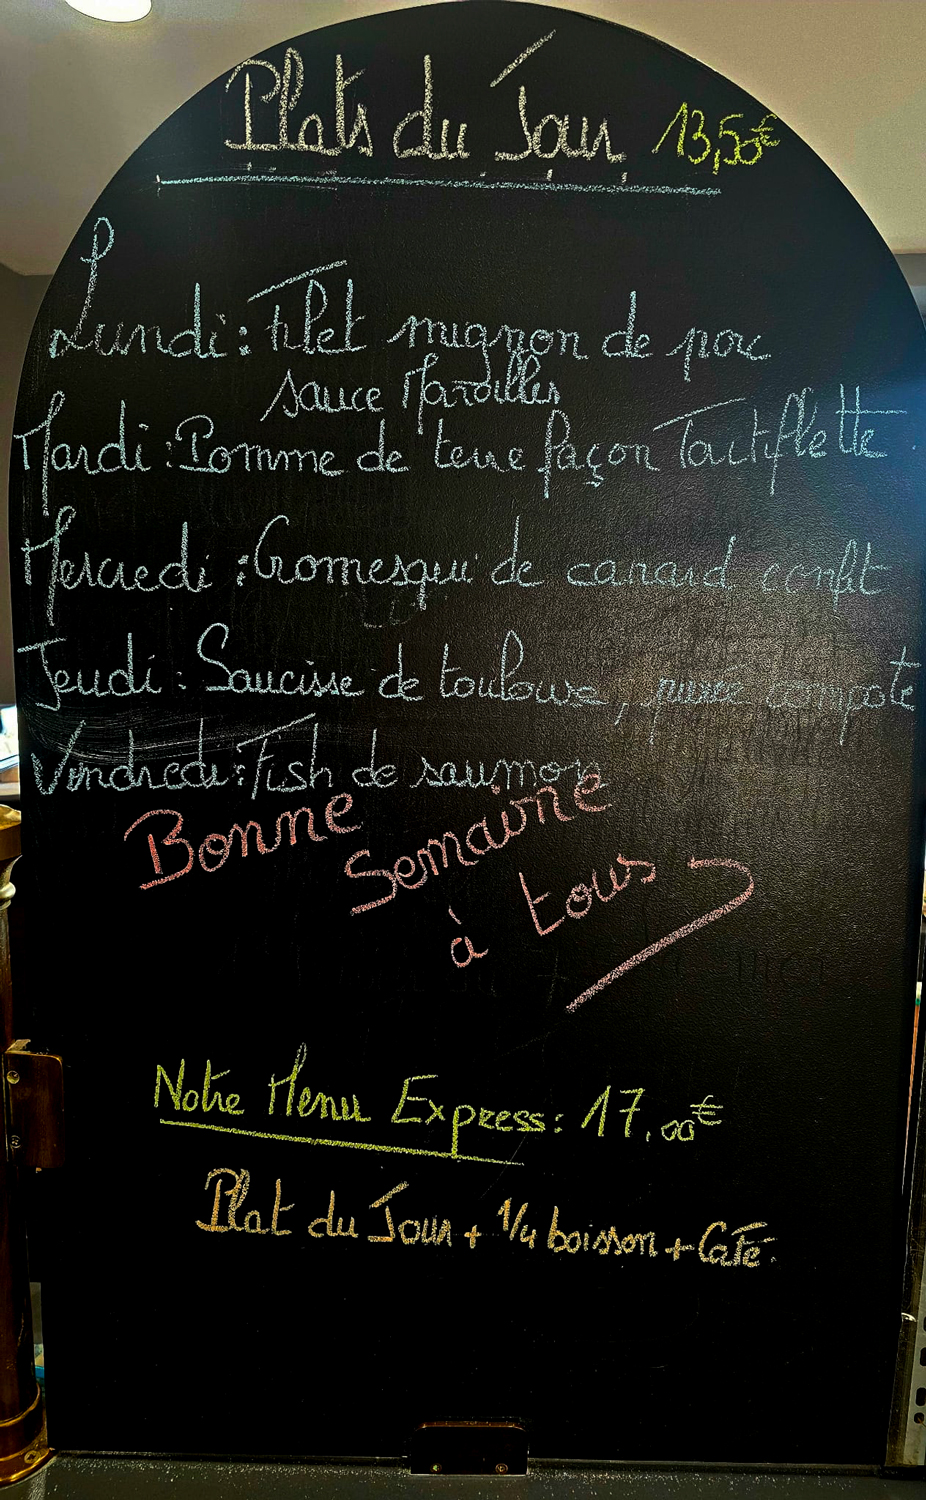 Plats du Jour 13,50€
Lundi : Filet mignon de porc
sauce Maroilles
Mardi : Pomme de terre façon Tartiflette.
Mercredi : Gromesqui de canard confit
Jeudi : Saucisse de toulouse, purée compote
Vendredi : Fish de saumon
Bonne
Semaine
à tous
Notre Menu Express : 17,00€
Plat du Jour + 1/4 boisson + Café.